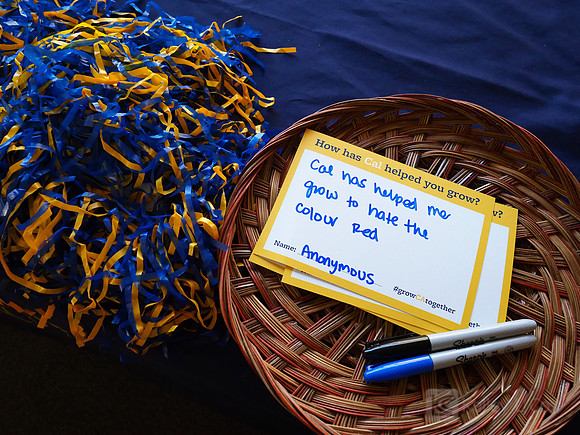 How has Cal helped you grow?
Cal has helped me
grow to hate the
colour Red
Name: Anonymous
#growCAtogether
w?
together
Sharpie
Sharpie